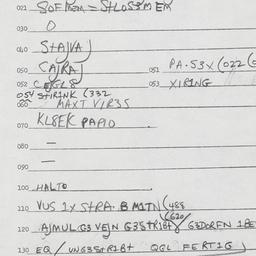 021 SOFREM = STLOSEM EM
030 O
040 STAJVAJ
050 CAJRAJ 051 PA.53X (022 (
052 CEKGL8 053 XIRING
054 STIRINK (332
060 MAXT VIR3S
070 KL8EK PAPIO
080 —
090 —
100 HALTO
110 VUS 1X STRA. B M1TN (488
(620/
120 AJMUL G3 VEJN G35TR1B+ G3DORFN 1BE
130 EQ/ UNG3STR1B+ QGL FERT1G )